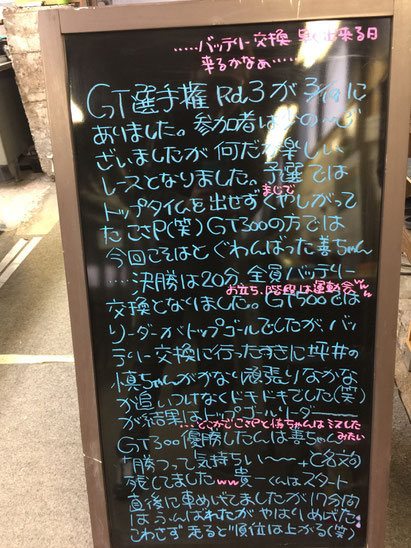 .....バッテリー交換 出来る日
来るかなぁ.....
GT選手権 Rd.3が に
ありました。参加者は
ざいましたが 何だか楽しい
レースとなりました。予選では
まじで
トップタイムを出せずくやしがって
たこさP(笑) GT300の方では
今回こそはとぐわんばった善ちゃん
....決勝は20分 全員バッテリー
お立ち階段は運動会
交換となりました。GT500では
リーダーがトップゴールでしたが、バッ
テリー交換に行ったすきに坪井の
慎ちゃんがかなり頑張りなかな
か追いつけなくドキドキでした(笑)
が結果はトップゴールリーダー
...どこかでこさPと慎ちゃんはミスした
みたい
GT300優勝したんは善ちゃん
"勝つって気持ちい〜〜"と名文句
残してましたww 貴一くんはスタート
直後に車めげてましたが17分間
は ばれたがやはりめげた。
こわさず来ると順位は上がる(笑)